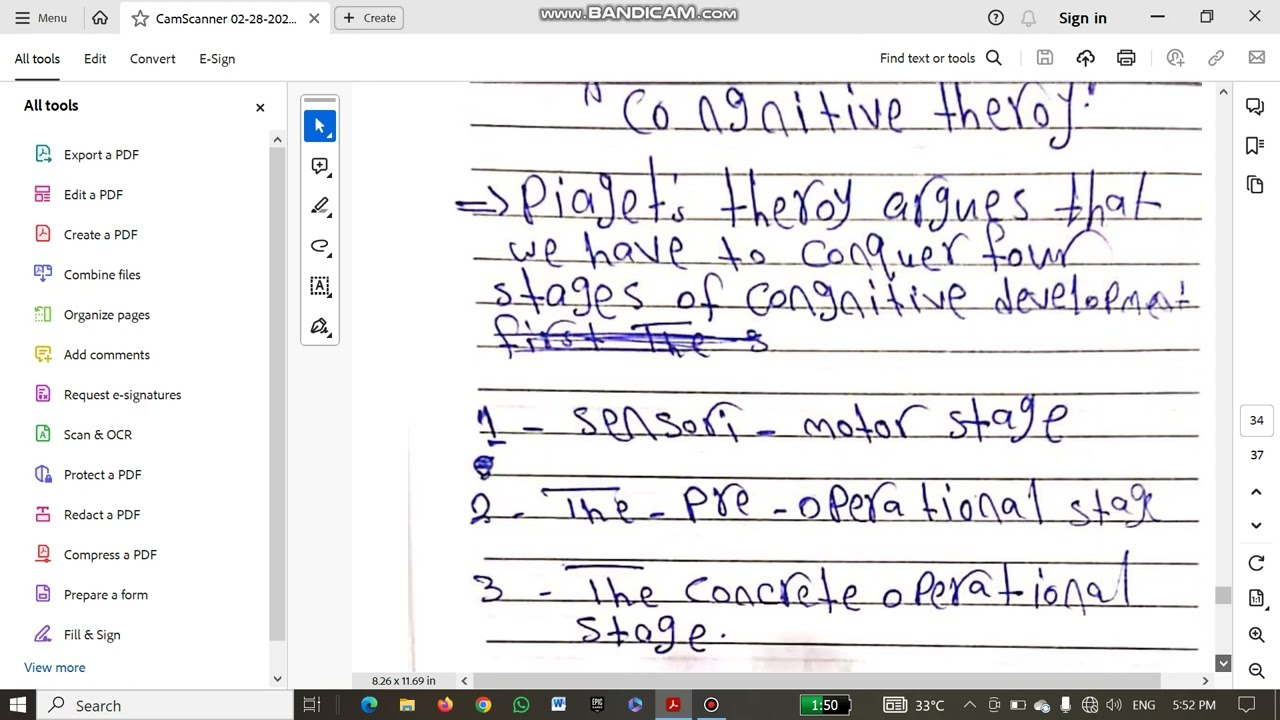 Menu
CamScanner 02-28-202...
Create
www.BANDICAM.com
Sign in
All tools
Edit
Convert
E-Sign
Find text or tools
All tools
Export a PDF
Edit a PDF
Create a PDF
Combine files
Organize pages
Add comments
Request e-signatures
Scan & OCR
Protect a PDF
Redact a PDF
Compress a PDF
Prepare a form
Fill & Sign
View more
"Congnitive theroy"
=> Piaget's theroy argues that
we have to conquer four
stages of congnitive development
first The s
1 - sensori - motor stage
2 - The - pre - operational stage
3 - The concrete operational
stage.
34
37
8.26 x 11.69 in
Search
1:50
33°C
ENG
5:52 PM